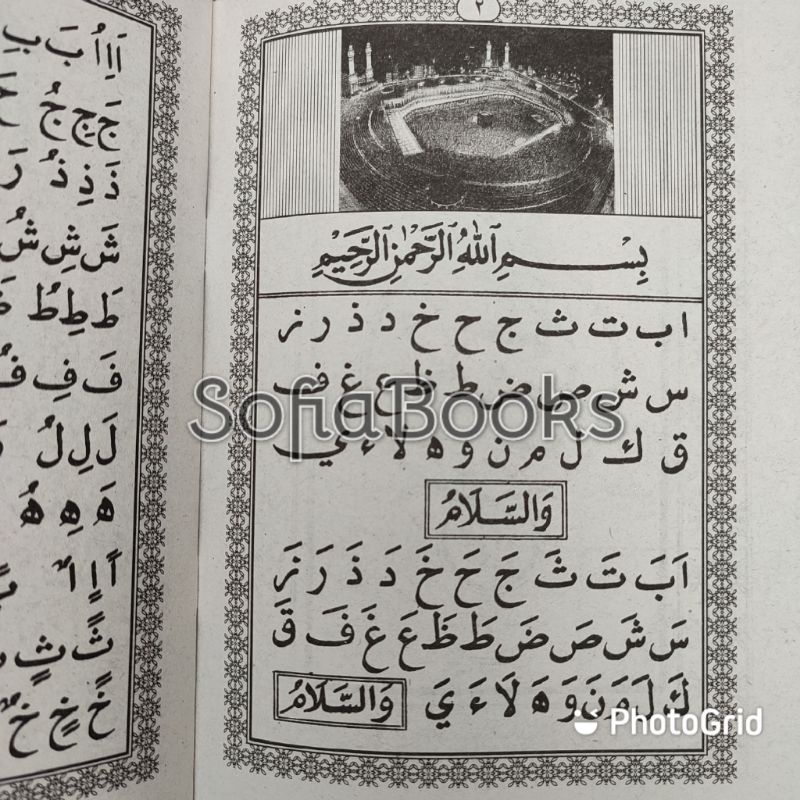 ٢
بِسْمِ ٱللَّهِ ٱلرَّحْمَٰنِ ٱلرَّحِيمِ
ا ب ت ث ج ح خ د ذ ر ز
س ش ص ض ط ظ ع غ ف
ق ك ل م ن و ه لا ء ي
وَالسَّلَامُ
اَ بَ تَ ثَ جَ حَ خَ دَ ذَ رَ زَ
سَ شَ صَ ضَ طَ ظَ عَ غَ فَ قَ
كَ لَ مَ نَ وَ هَ لَا ءَ يَ وَالسَّلَامُ
اَ اِ اُ بَ بِ
جَ جِ جُ
ذَ ذِ ذُ رَ
شَ شِ شُ
طَ طِ طُ
فَ فِ فُ
لَ لِ لُ
هَ هِ هُ
اً اٍ اٌ
ثً ثٍ
خً خٍ خٌ
SofiaBooks
PhotoGrid